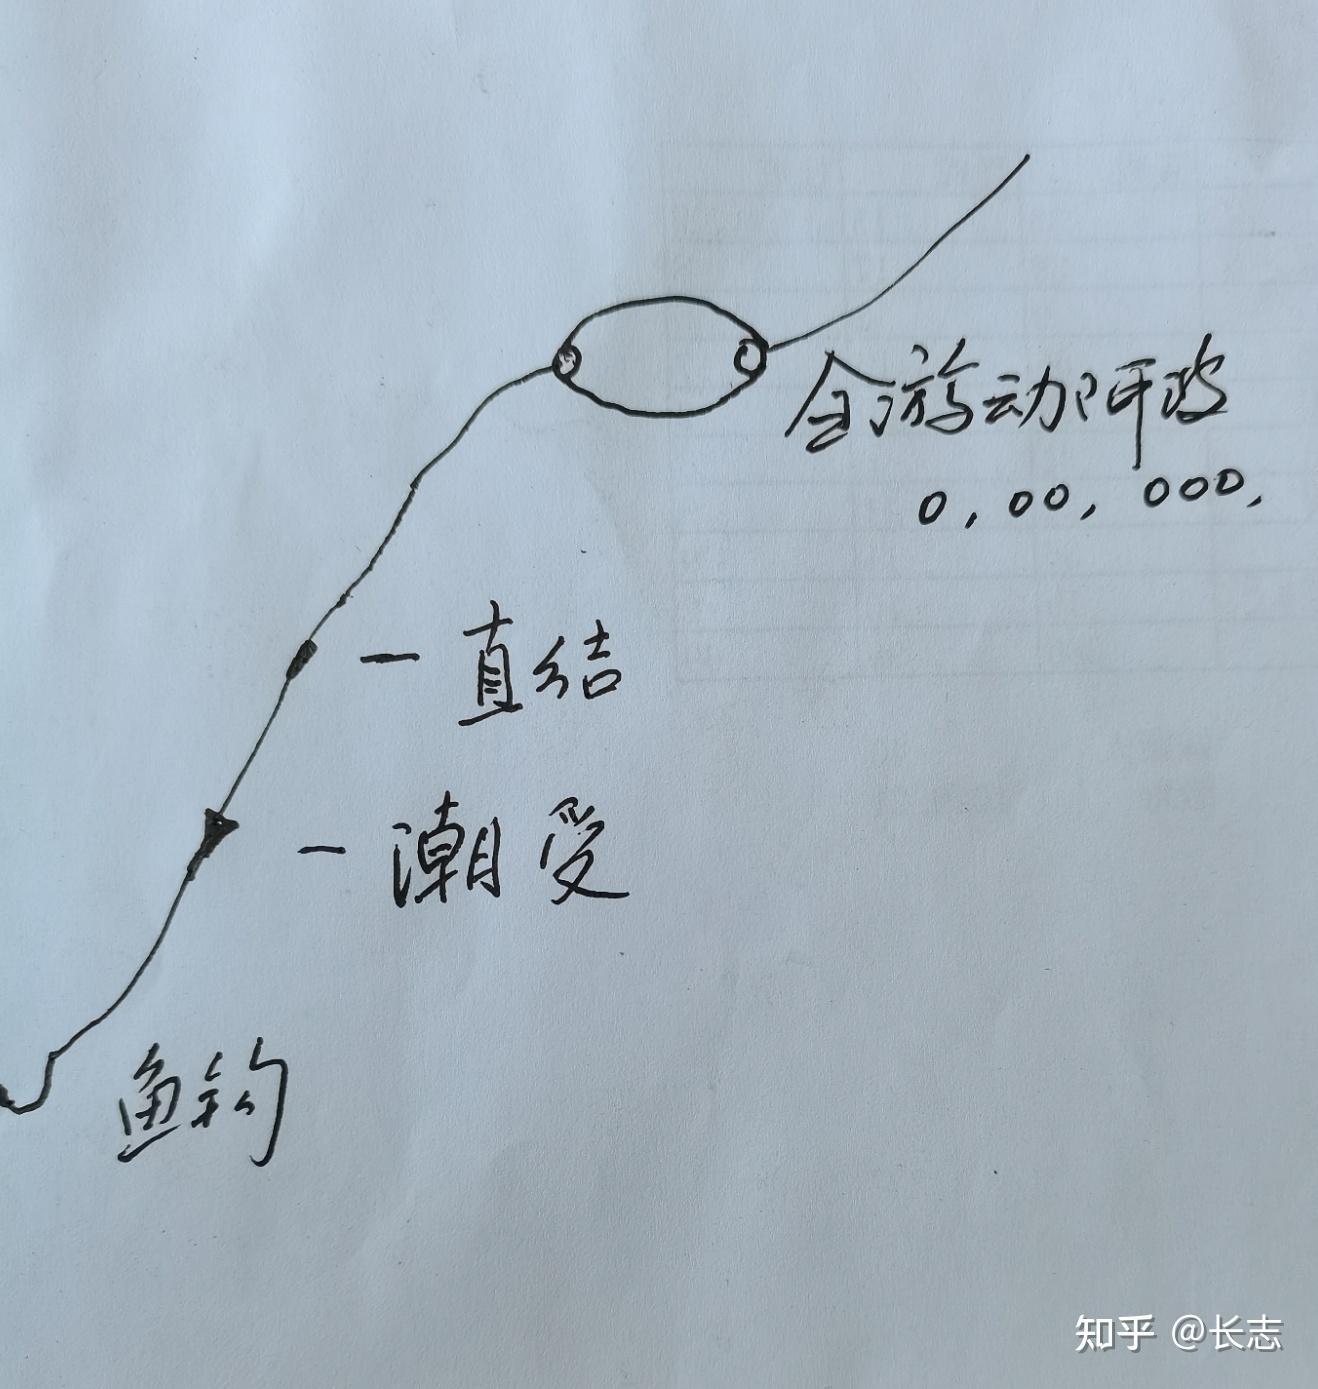 全游动阿波
0，00，000，
一 直结
一 潮受
鱼钩
知乎 @长志